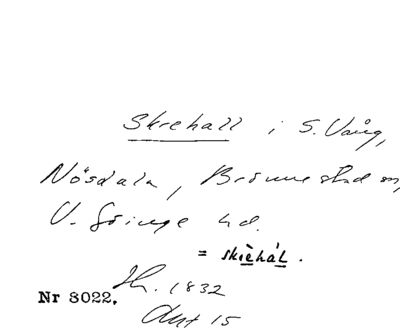 Skrehall i S. Vång,
Nösdala, Brönnestad sn,
V. Göinge hd.
= skrèhál.
Nr 3022. Th. 1832
Aht 15